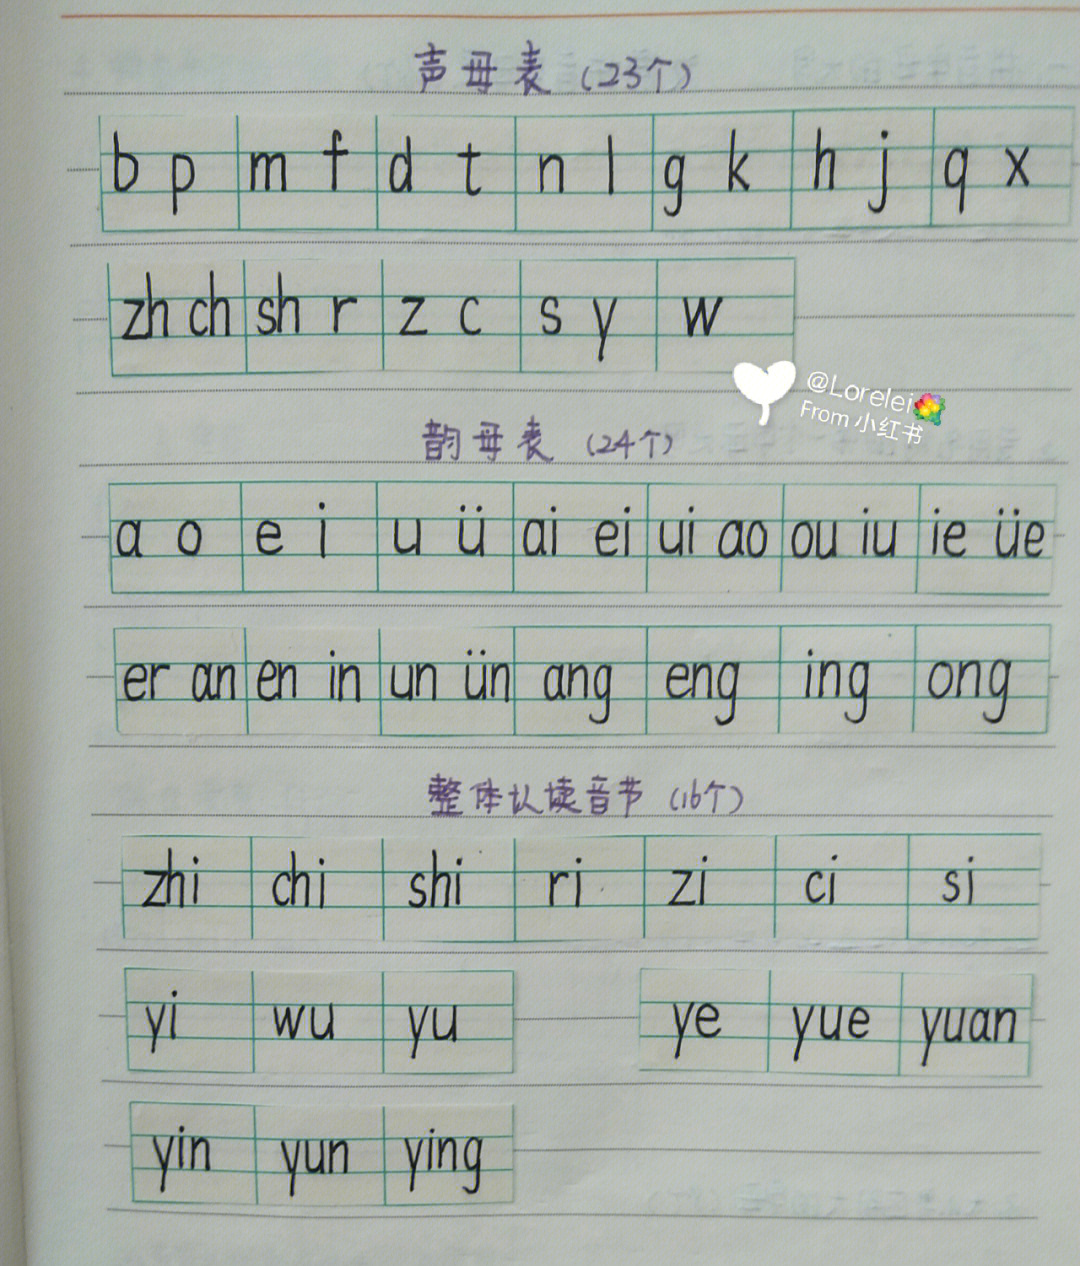 声母表（23个）
b p m f d t n l g k h j q x
zh ch sh r z c s y w
@Lorelei
From 小红书
韵母表（24个）
a o e i u ü ai ei ui ao ou iu ie üe
er an en in un ün ang eng ing ong
整体认读音节（16个）
zhi chi shi ri zi ci si
yi wu yu ye yue yuan
yin yun ying